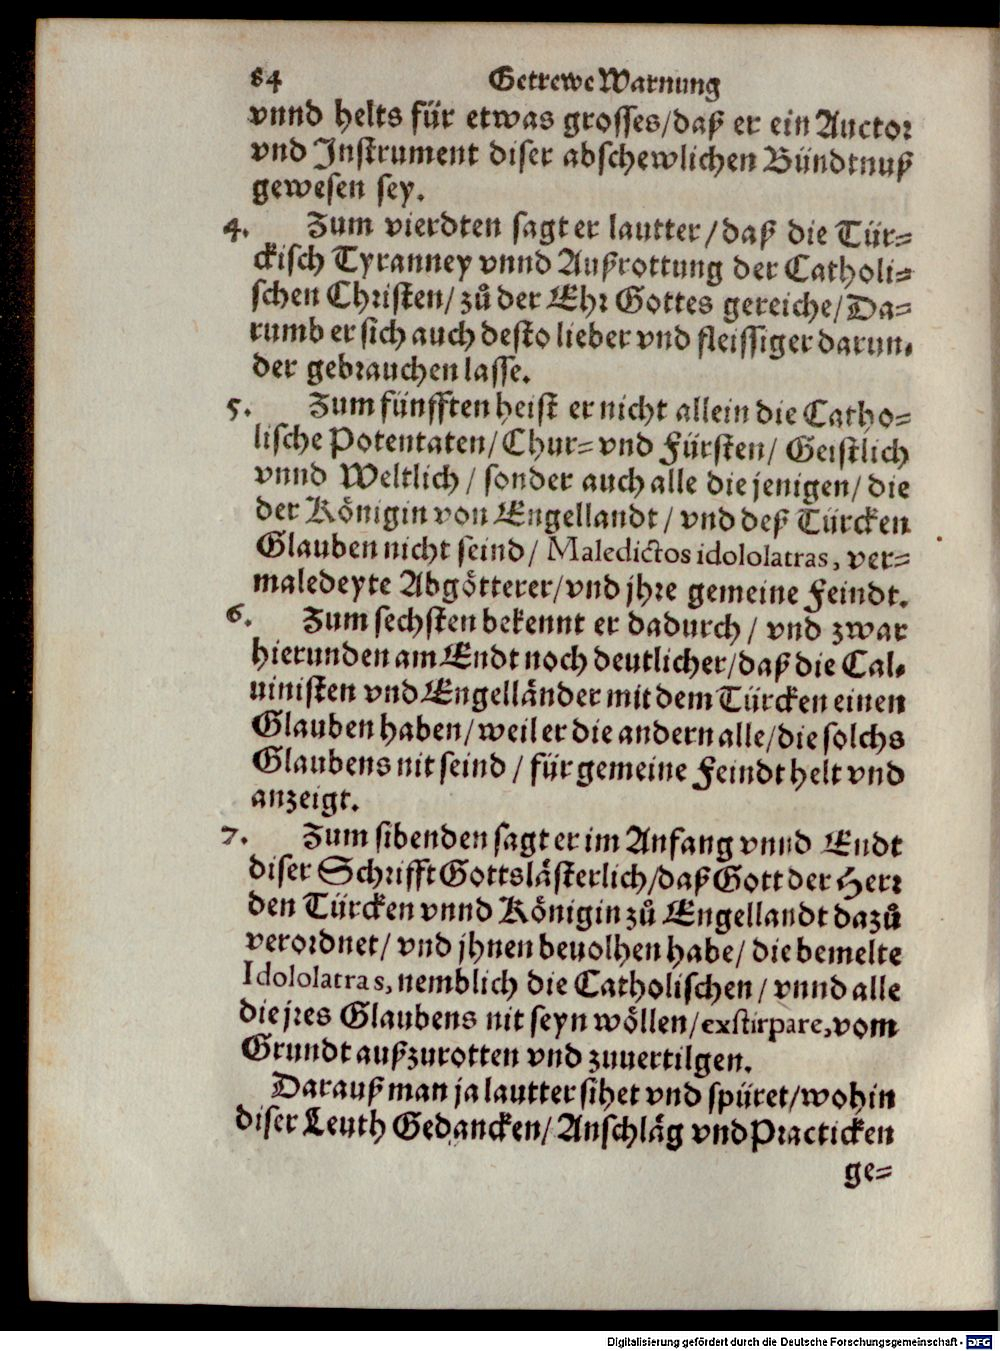 84 Getrewe Warnung
vnnd helts für etwas grosses/daß er ein Auctor
vnd Instrument diser abschewlichen Bündtnuß
gewesen sey.
4. Zum vierdten sagt er lautter/daß die Tür-
ckisch Tyranney vnnd Außrottung der Catholi-
schen Christen/zů der Ehr Gottes gereiche/Da-
rumb er sich auch desto lieber vnd fleissiger darun-
der gebrauchen lasse.
5. Zum fünfften heist er nicht allein die Catho-
lische Potentaten/Chur- vnd Fürsten/Geistlich
vnnd Weltlich/sonder auch alle die jenigen/die
der Königin von Engellandt/vnd deß Türcken
Glauben nicht seind/Maledictos idololatras, ver-
maledeyte Abgötterer/vnd jhre gemeine Feindt.
6. Zum sechsten bekennt er dadurch/vnd zwar
hierunden am Endt noch deutlicher/daß die Cal-
uinisten vnd Engelländer mit dem Türcken einen
Glauben haben/weil er die andern alle/die solchs
Glaubens nit seind/für gemeine Feindt helt vnd
anzeigt.
7. Zum sibenden sagt er im Anfang vnnd Endt
diser Schrifft Gottslästerlich/daß Gott der Herr
den Türcken vnnd Königin zů Engellandt dazů
verordnet/vnd jhnen beuolhen habe/die bemelte
Idololatras, nemblich die Catholischen/vnnd alle
die jres Glaubens nit seyn wöllen/exstirpare, vom
Grundt außzurotten vnd zuuertilgen.
Darauß man ja lautter sihet vnd spüret/wohin
diser Leuth Gedancken/Anschläg vnd Practicken
ge-
Digitalisierung gefördert durch die Deutsche Forschungsgemeinschaft - DFG